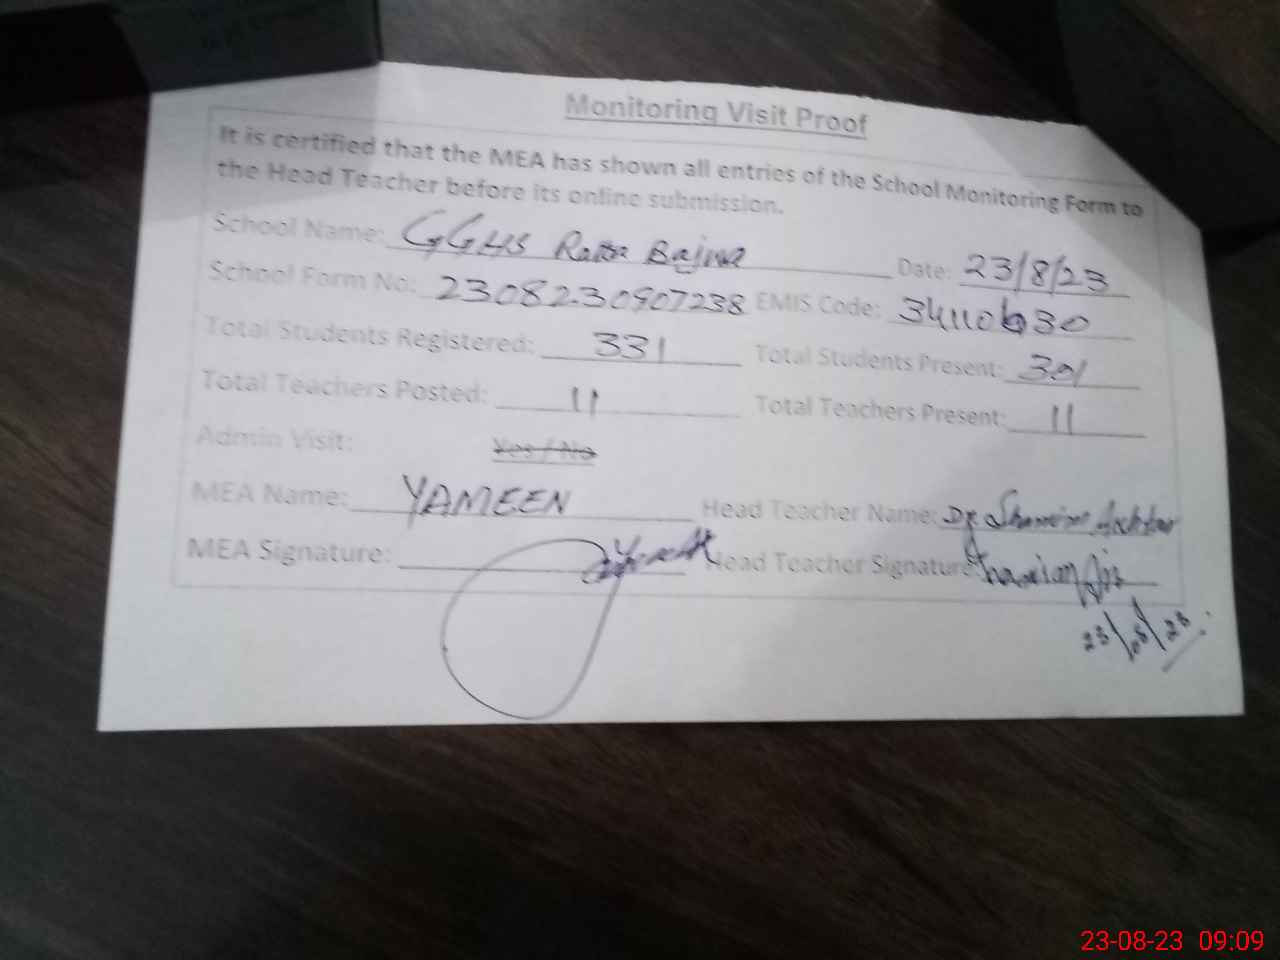 Monitoring Visit Proof
It is certified that the MEA has shown all entries of the School Monitoring Form to
the Head Teacher before its online submission.
School Name: GGHS Ratta Bajwa Date: 23/8/23
School Form No: 2308230907238 EMIS Code: 34110630
Total Students Registered: 331 Total Students Present: 301
Total Teachers Posted: 11 Total Teachers Present: 11
Admin Visit: Yes / No
MEA Name: YAMEEN Head Teacher Name: Dr Shamim Akhtar
MEA Signature: Head Teacher Signature
23/08/23
23-08-23 09:09